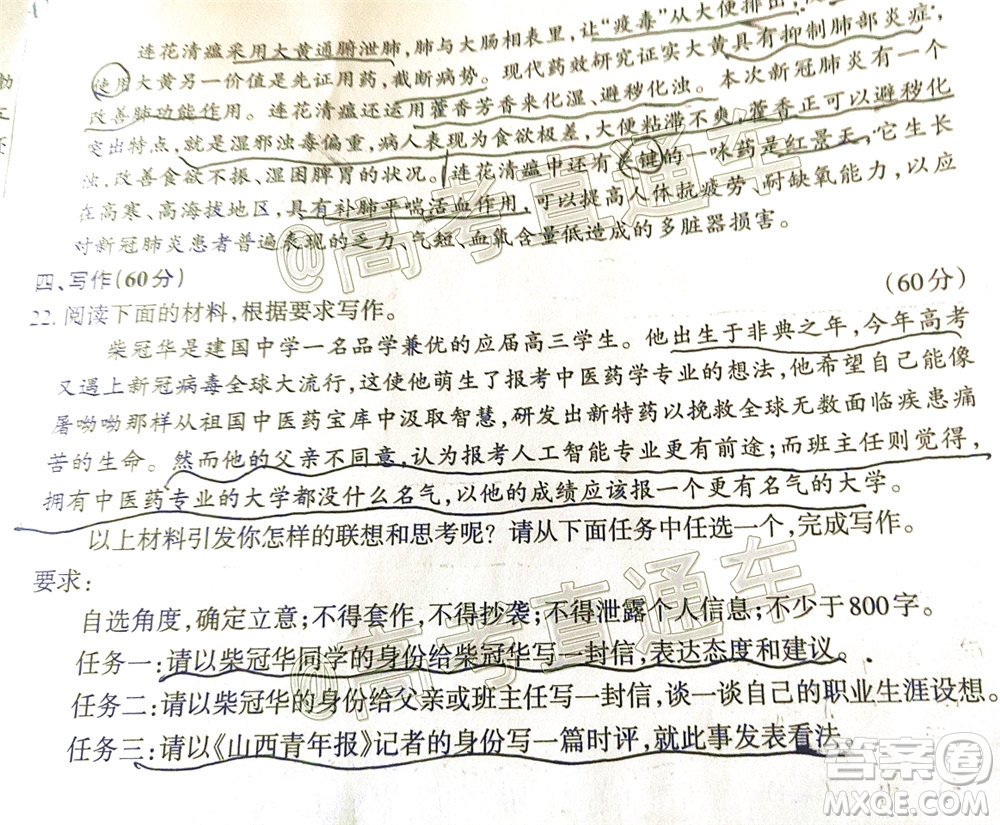 连花清瘟采用大黄通腑泄肺,肺与大肠相表里,让“疫毒”从大便排出,
使用大黄另一价值是先证用药,截断病势。现代药效研究证实大黄具有抑制肺部炎症,
改善肺功能作用。连花清瘟还运用藿香芳香来化湿、避秽化浊。本次新冠肺炎有一个
突出特点,就是湿邪浊毒偏重,病人表现为食欲极差,大便粘滞不爽,藿香正可以避秽化
浊,改善食欲不振、湿困脾胃的状况。连花清瘟中还有关键的一味药是红景天,它生长
在高寒、高海拔地区,具有补肺平喘活血作用,可以提高人体抗疲劳、耐缺氧能力,以应
对新冠肺炎患者普遍表现的乏力、气短、血氧含量低造成的多脏器损害。
四、写作(60分)
(60分)
22. 阅读下面的材料,根据要求写作。
柴冠华是建国中学一名品学兼优的应届高三学生。他出生于非典之年,今年高考
又遇上新冠病毒全球大流行,这使他萌生了报考中医药学专业的想法,他希望自己能像
屠呦呦那样从祖国中医药宝库中汲取智慧,研发出新特药以挽救全球无数面临疾患痛
苦的生命。然而他的父亲不同意,认为报考人工智能专业更有前途;而班主任则觉得,
拥有中医药专业的大学都没什么名气,以他的成绩应该报一个更有名气的大学。
以上材料引发你怎样的联想和思考呢?请从下面任务中任选一个,完成写作。
要求:
自选角度,确定立意;不得套作,不得抄袭;不得泄露个人信息;不少于800字。
任务一:请以柴冠华同学的身份给柴冠华写一封信,表达态度和建议。
任务二:请以柴冠华的身份给父亲或班主任写一封信,谈一谈自己的职业生涯设想。
任务三:请以《山西青年报》记者的身份写一篇时评,就此事发表看法。
@高考直通车
@高考直通车
答案圈
MXQE.COM